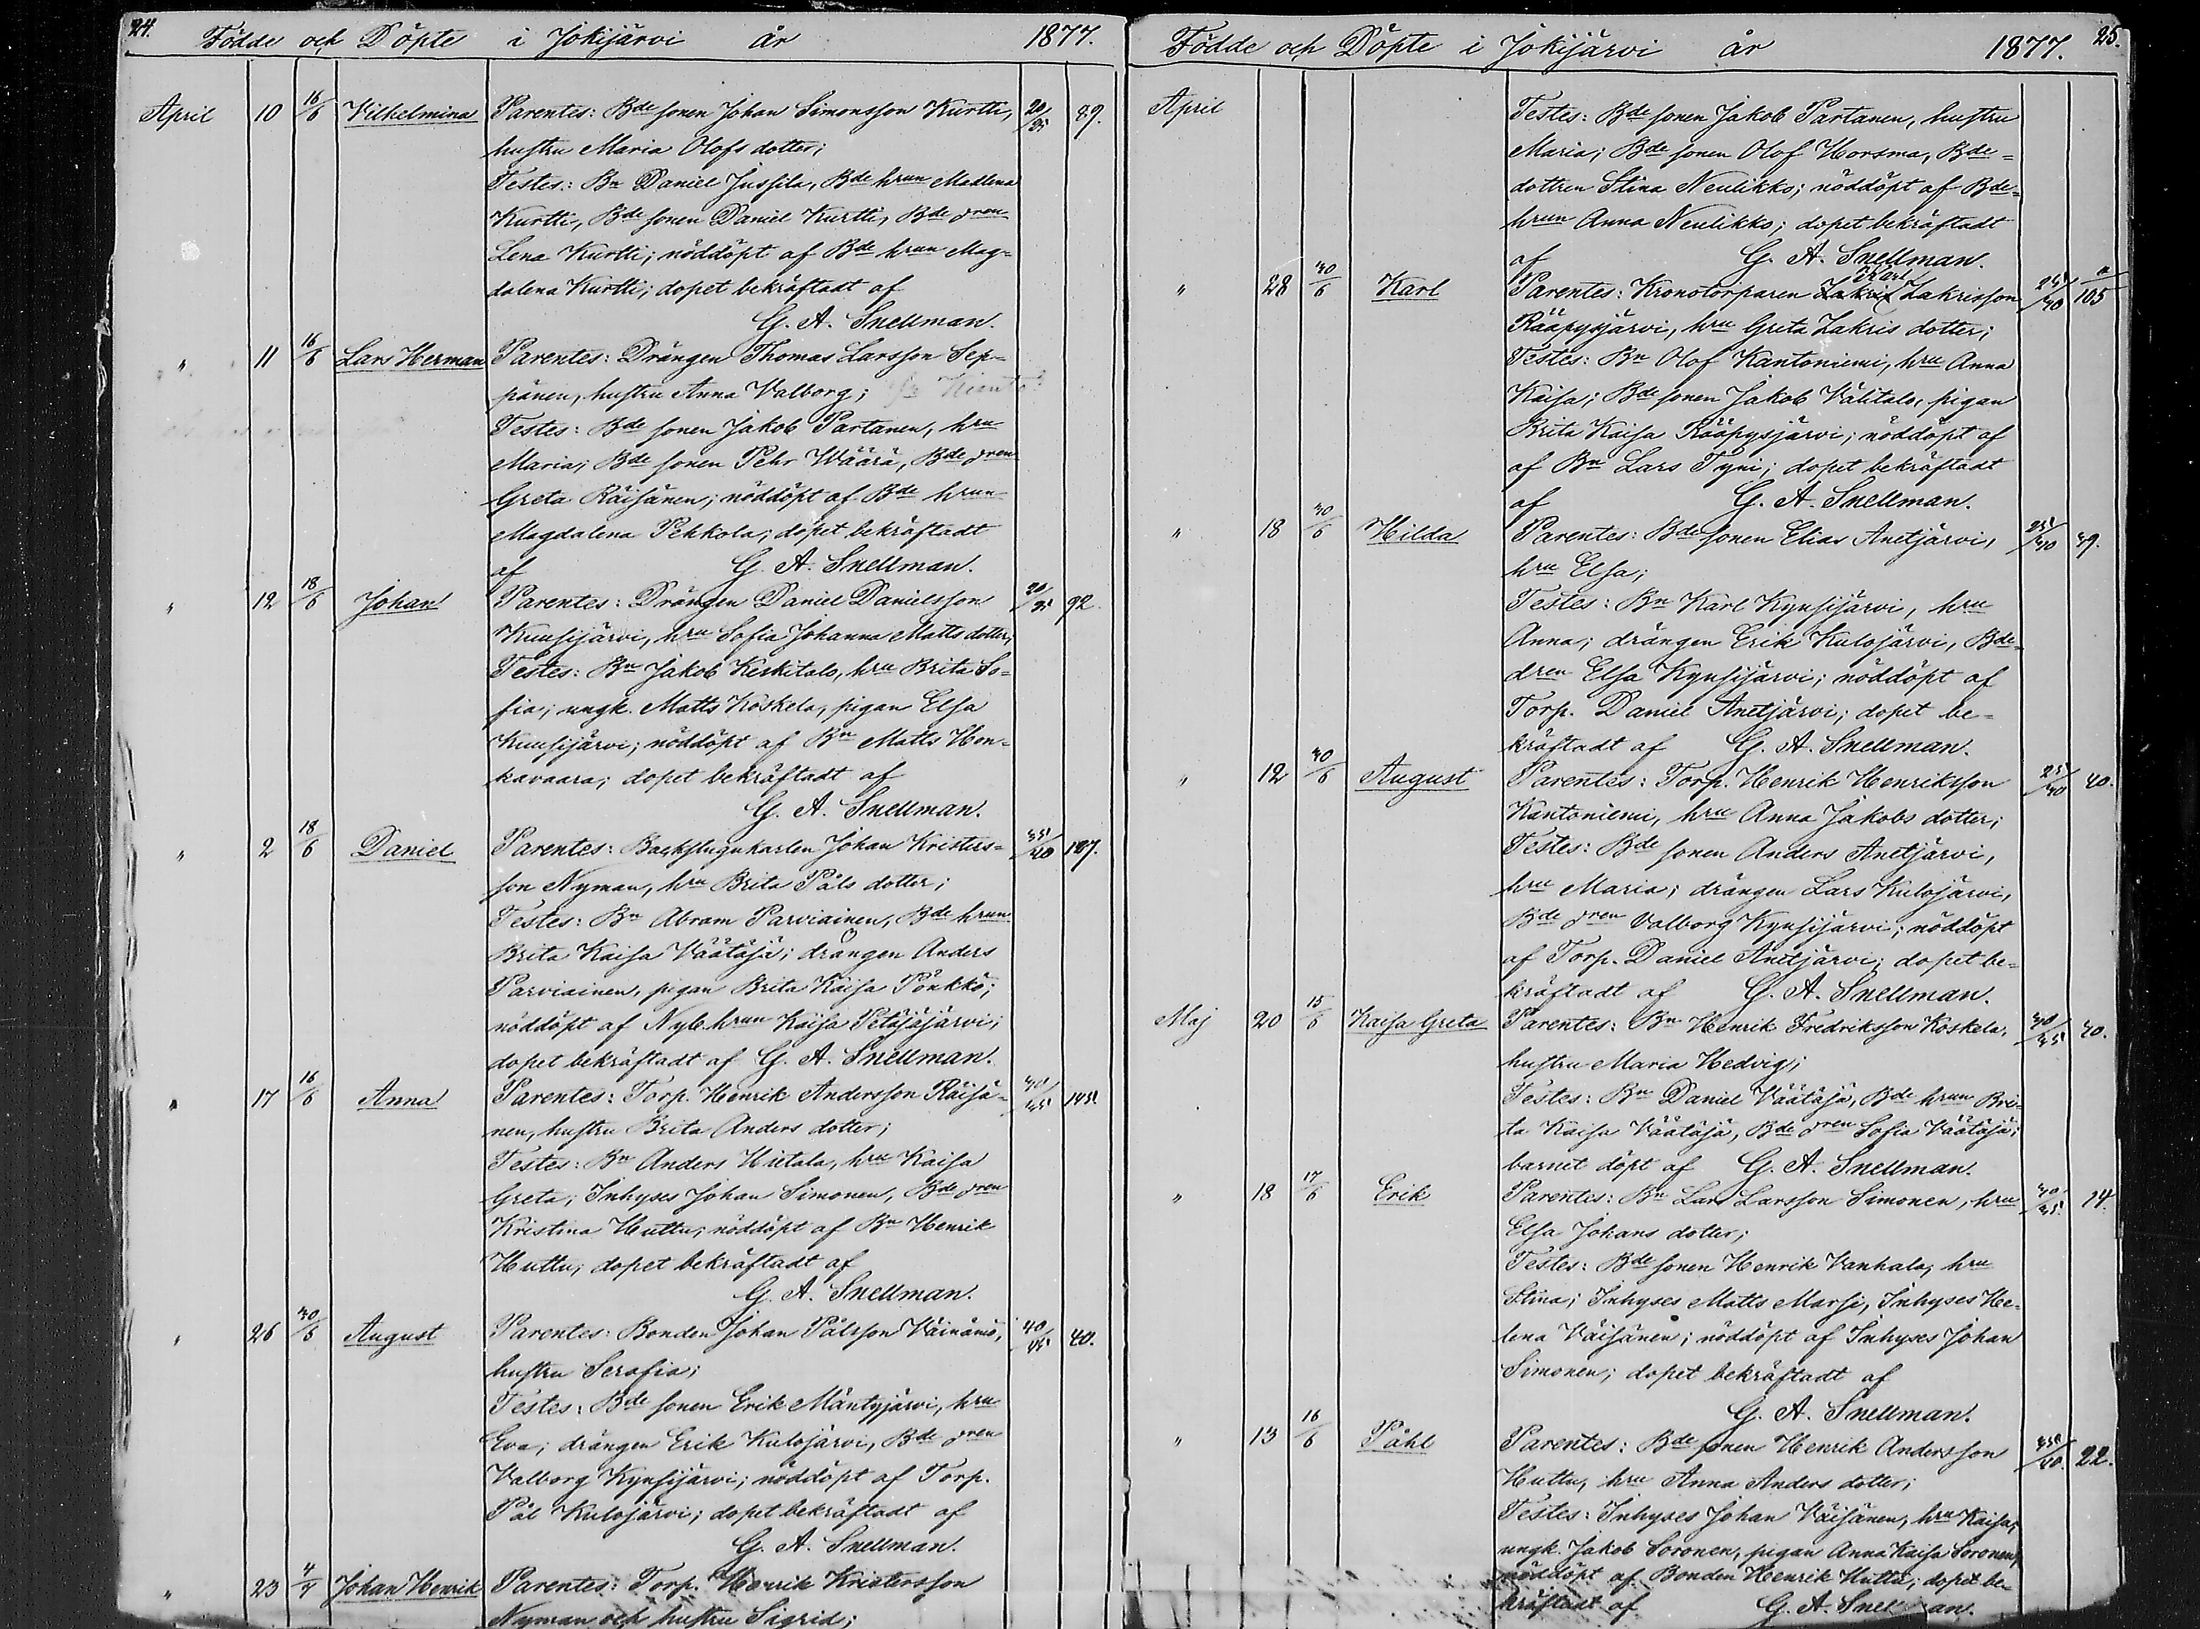 24.
Födde och Döpte i Jokijärvi år 1877.
April 10 16/6 Vilhelmina Parentes: Bde sonen Johan Simonsson Kurtti, 20/25 89.
hustru Maria Olofs dotter;
Testes: Bn Daniel Jussila, Bde hrun Madlena
Kurtti, Bde sonen Daniel Kurtti, Bde dren
Lena Kurtti; nöddöpt af Bde hrun Mag=
dalena Kurtti; dopet bekräftadt af
G. A. Snellman.
" 11 16/6 Lars Herman Parentes: Drängen Thomas Larsson Sep=
pänen, hustru Anna Valborg;
Testes: Bde sonen Jakob Partanen, hru
Maria; Bde sonen Pehr Wäärä, Bde dren
Greta Räisänen; nöddöpt af Bde hrun
Magdalena Pekkola; dopet bekräftadt
af G. A. Snellman.
" 12 18/6 Johan Parentes: Drängen Daniel Danielsson 92.
Kuusijärvi, hru Sofia Johanna Matts dotter;
Testes: Bn Jakob Keskitalo, hru Brita So=
fia; ungk. Matts Koskela, pigan Elsa
Kuusijärvi; nöddöpt af Bn Matts Hon=
kavaara; dopet bekräftadt af
G. A. Snellman.
" 2 18/6 Daniel Parentes: Backstugukarlen Johan Kristers= 35/40 187.
son Nyman, hru Brita Påls dotter;
Testes: Bn Abram Parviainen, Bde hrun
Brita Kaisa Väätäjä; drängen Anders
Parviainen, pigan Brita Kaisa Pönkkö;
nöddöpt af Nyb. hrun Kaisa Petäjäjärvi;
dopet bekräftadt af G. A. Snellman.
" 17 16/6 Anna Parentes: Torp. Henrik Andersson Räisä=
nen, hustru Brita Anders dotter;
Testes: Bn Anders Hietala, hru Kaisa
Greta; Inhyses Johan Simonen, Bde dren
Kristina Huttu; nöddöpt af Bn Henrik
Huttu; dopet bekräftadt af
G. A. Snellman.
" 26 30/6 August Parentes: Bonden Johan Pålsson Väinämö, 40/45 40.
hustru Serafia;
Testes: Bde sonen Erik Mäntyjärvi, hru
Eva; drängen Erik Kulojärvi, Bde dren
Valborg Kynsijärvi; nöddöpt af Torp.
Pål Kulojärvi; dopet bekräftadt af
G. A. Snellman.
" 23 Johan Henrik Parentes: Torp. Henrik Kristersson
Nyman och hustru Sigrid;
25.
Födde och Döpte i Jokijärvi år 1877.
April Testes: Bde sonen Jakob Partanen, hustru
Maria; Bde sonen Olof Horsma, Bde=
dottren Stina Neulikko; nöddöpt af Bde=
hrun Anna Neulikko; dopet bekräftadt
af G. A. Snellman.
Karl
" 28 30/6 Karl Parentes: Kronotorparen Zakris Zakrisson 105
Rääpysjärvi, hru Greta Zakris dotter;
Testes: Bn Olof Kantoniemi, hru Anna
Kaisa; Bde sonen Jakob Välitalo, pigan
Brita Kaisa Rääpysjärvi; nöddöpt af
af Bn Lars Tyni; dopet bekräftadt
af G. A. Snellman.
" 18 30/6 Hilda Parentes: Bde sonen Elias Anetjärvi, 39.
hru Elsa;
Testes: Bn Karl Kynsijärvi, hru
Anna; drängen Erik Kulojärvi, Bde=
dren Elsa Kynsijärvi; nöddöpt af
Torp. Daniel Anetjärvi; dopet be=
kräftadt af G. A. Snellman.
" 12 30/6 August Parentes: Torp. Henrik Henriksson 40.
Kantoniemi, hru Anna Jakobs dotter;
Testes: Bde sonen Anders Anetjärvi,
hru Maria; drängen Lars Kulojärvi,
Bde dren Valborg Kynsijärvi; nöddöpt
af Torp. Daniel Anetjärvi; dopet be=
kräftadt af G. A. Snellman.
Maj 20 15/6 Kaisa Greta Parentes: Bn Henrik Fredriksson Koskela, 30/35
hustru Maria Hedvig;
Testes: Bn Daniel Väätäjä, Bde hrun Bri=
ta Kaisa Väätäjä, Bde dren Sofia Väätäjä;
barnet döpt af G. A. Snellman.
" 18 17/6 Erik Parentes: Bn Lars Larsson Simonen, hru 30/35. 14.
Elsa Johans dotter;
Testes: Bde sonen Henrik Vanhala, hru
Stina; Inhyses Matts Marsi, Inhyses He=
lena Väisänen; nöddöpt af Inhyses Johan
Simonen; dopet bekräftadt af
G. A. Snellman.
" 13 16/6 Påhl Parentes: Bde sonen Henrik Andersson 35/40. 22.
Huttu, hru Anna Anders dotter;
Testes: Inhyses Johan Väisänen, hru Kaisa;
ungk. Jakob Soronen, pigan Anna Kaisa Soronen;
nöddöpt af Bonden Henrik Huttu; dopet be=
kräftadt af G. A. Snellman.